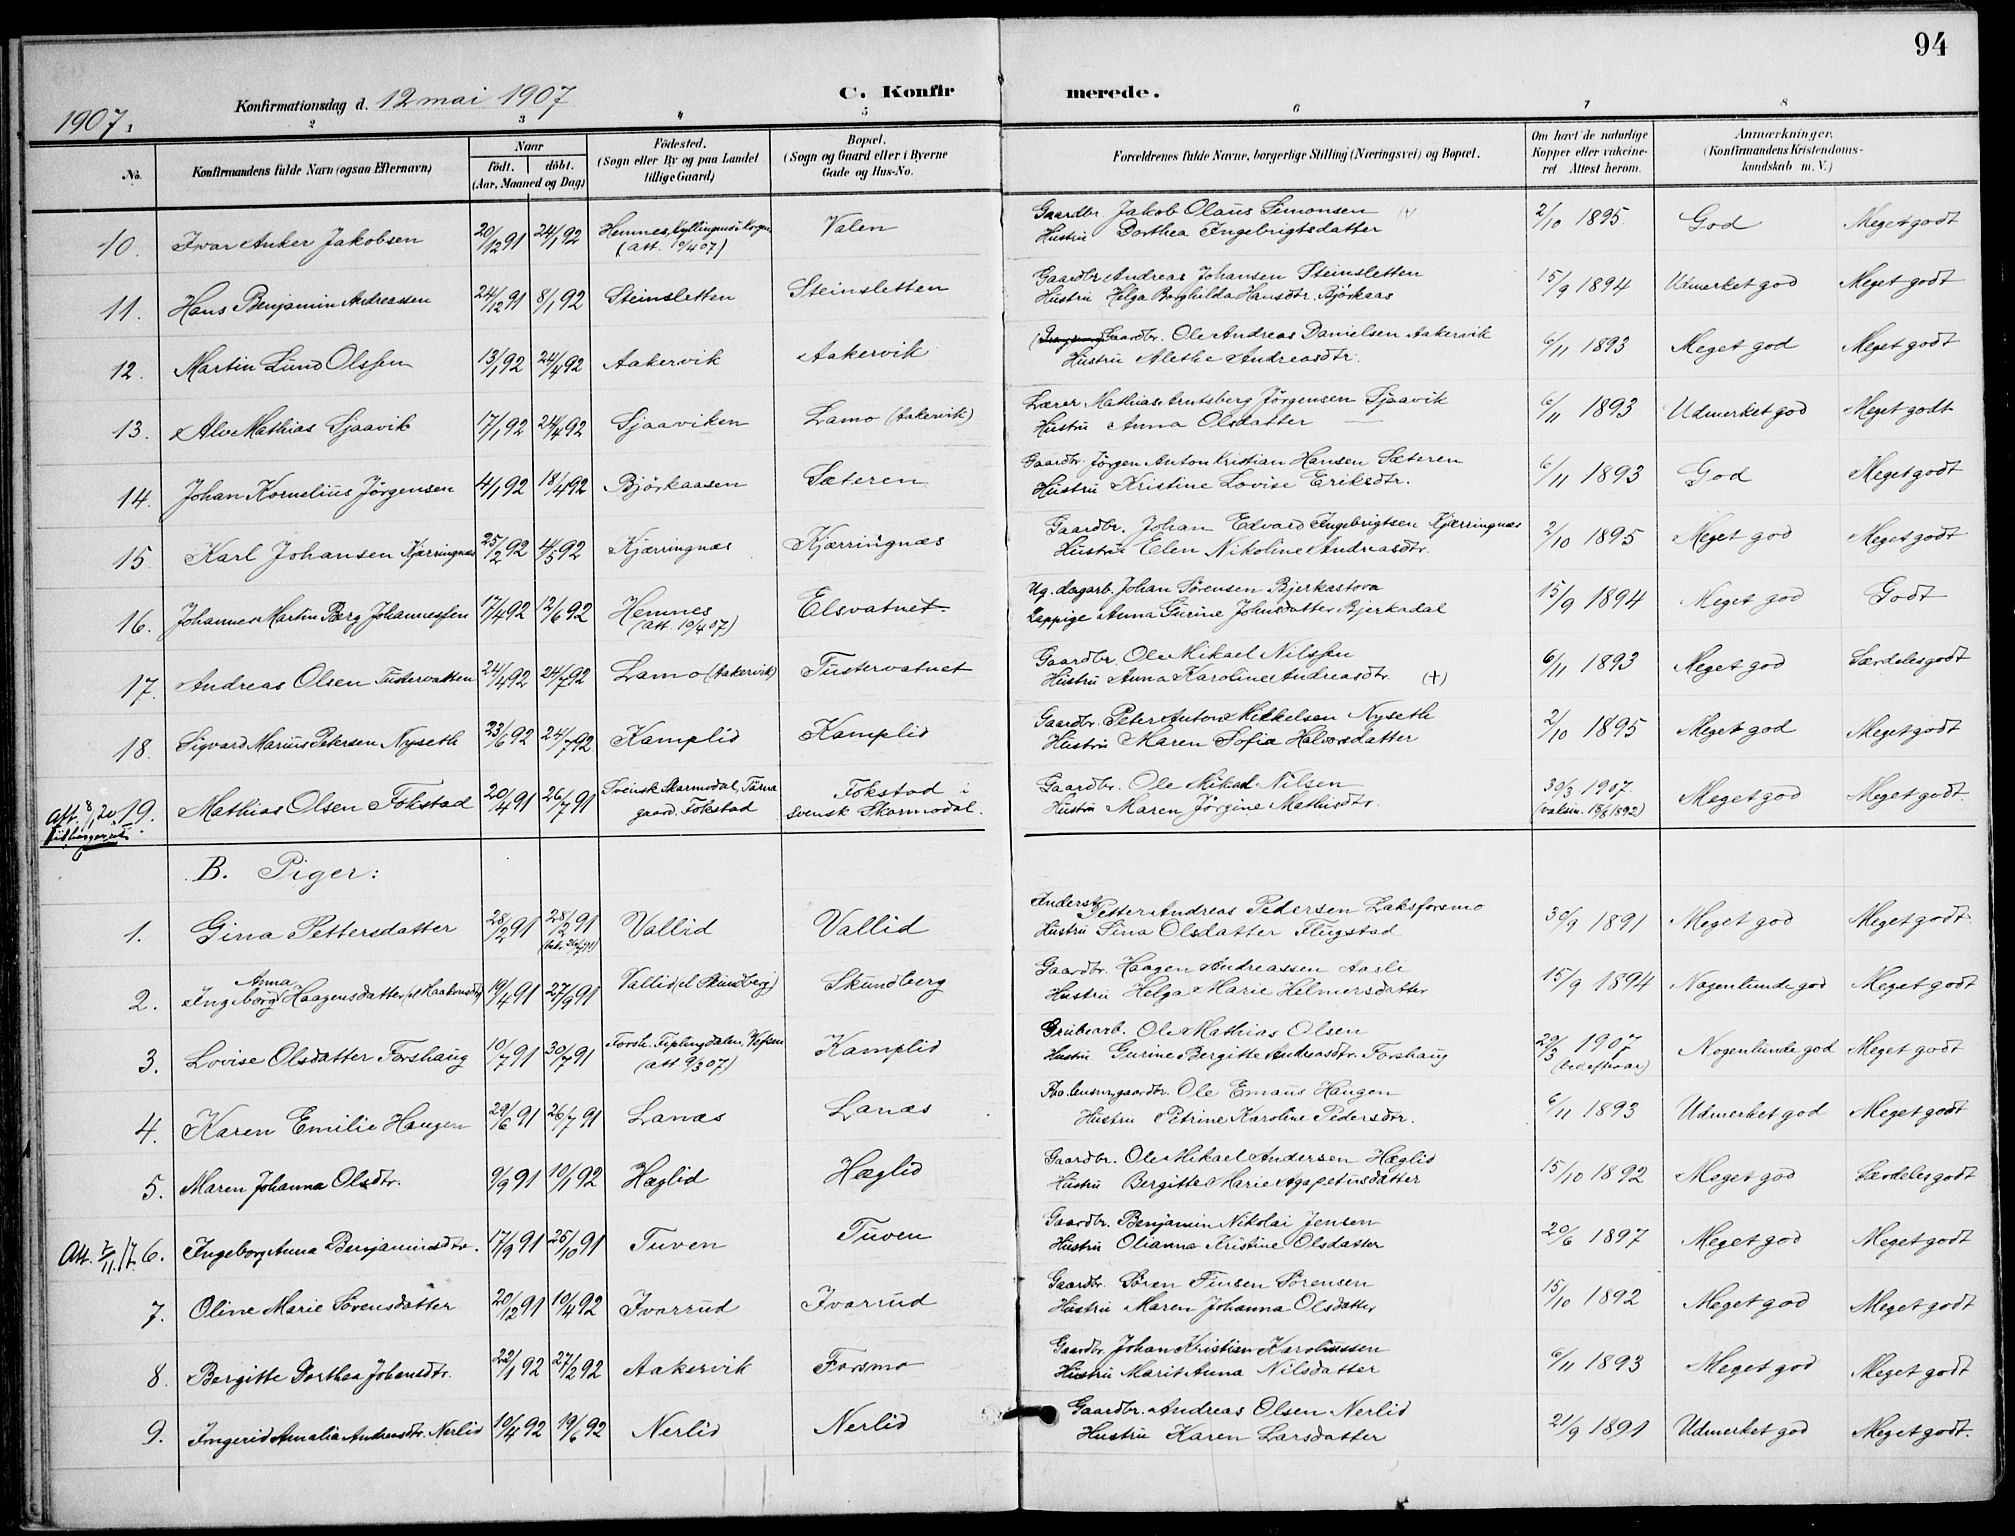 94
1907.
Konfirmationsdag d. 12 mai 1907
C. Konfirmerede.
2 3 4 5 6 7 8
No.
Konfirmandens fulde Navn (ogsaa Efternavn)
Naar
født. døbt.
(Aar, Maaned og Dag)
Fødested.
(Sogn eller By og paa Landet
tillige Gaard)
Bopæl.
(Sogn og Gaard eller i Byerne
Gade og Hus-No.
Forældrenes fulde Navne, borgerlige Stilling (Næringsvei) og Bopæl.
Om havt de naturlige
Kopper eller vakcine-
ret Attest herom.
Anmærkninger.
(Konfirmandens Kristendoms-
kundskab m. V.)
10. Ivar Anker Jakobsen 20/12 91 24/1 92 Hemnes, (att. 10/4 07) Valen Gaardbr. Jakob Olaus Simonsen (+) Hustru Dorthea Ingebrigtsdatter 2/10 1895 God Meget godt
11. Hans Benjamin Andreassen 24/12 91 8/1 92 Steinsletten Steinsletten Gaardbr. Andreas Johansen Steinsletten Hustru Helga Borghilda Hansdtr. Björkaas 15/9 1894 Udmerket god Meget godt
12. Martin Lund Olssen 13/1 92 24/4 92 Aakervik Aakervik Gaardbr. Ole Andreas Danielsen Aakervik Hustru Alethe Andreasdtr. 6/11 1893 Meget god Meget godt
13. Alv Mathias Sjaavik 17/1 92 24/4 92 Sjaaviken Lamo (Aakervik) Lærer Mathias Arntsberg Jörgensen Sjaavik Hustru Anna Olsdatter — 6/11 1893 Udmerket god Meget godt
14. Johan Kornelius Jörgensen 4/1 92 18/4 92 Björkaasen Sæteren Gaardbr. Jörgen Anton Kristian Hansen Sæteren Hustru Kristine Lovise Eriksdtr. 6/11 1893 God Meget godt
15. Karl Johansen Kjærringnæs 25/2 92 4/5 92 Kjærringnæs Kjærringnæs Gaardbr. Johan Edvard Ingebrigtsen Kjærringnæs Hustru Elen Nikoline Andreasdtr. 2/10 1895 Meget god Meget godt
16. Johannes Martin Berg Johannessen 17/4 92 12/6 92 Hemnes (att. 10/4 07) Elsvatnet Ug. dagarb. Johan Sörensen Bjerkastova Lappige Anna Gurine Johnsdatter Bjerkadal 15/9 1894 Meget god Godt
17. Andreas Olsen Tustervatten 24/4 92 24/7 92 Lamo (Aakervik) Tustervatnet Gaardbr. Ole Mikael Nilssen Hustru Anna Karoline Andreasdtr. (+) 6/11 1893 Meget god Særdeles godt
18. Sigvard Marius Petersen Nyseth 23/6 92 24/7 92 Kamplid Kamplid Gaardbr. Peter Anton Mikkelsen Nyseth Hustru Maren Sofia Halvorsdatter 2/10 1895 Meget god Meget godt
19. Mathias Olsen Fokstad 20/4 91 26/7 91 Svensk Skarmodal, Tärna gaard. Fokstad Fokstad i svensk Skarmodal. Gaardbr. Ole Mikal Nilsen Hustru Maren Jörgine Mathisdtr. 30/3 1907 (vaksin. 18/8 1892) Meget god Meget godt
B. Piger:
1. Gina Pettersdatter 28/2 91 28/2 91 Vallid Vallid Petter Andreas Pedersen Laksforsmo Hustru Sina Olsdatter Flugstad 30/9 1891 Meget god Meget godt
2. Anna Ingeborg Haagensdatter (el. Haakonsdtr) 19/4 91 27/9 91 Vallid (el. Skundberg) Skundberg Gaardbr. Haagen Andreassen Aasli Hustru Helga Marie Helmersdatter 15/9 1894 Nogenlunde god Meget godt
3. Lovise Olsdatter Forshaug 10/7 91 30/7 91 Forsh. Fiplingdalen, Vefsen (att 9/3 07) Kamplid Grubearb. Ole Mathias Olsen Hustru Gurine Bergitte Andreasdtr. Forshaug 29/3 1907 Nogenlunde god Meget godt
4. Karen Emilie Haugen 29/6 91 26/7 91 Lanæs Lanæs Ole Emaus Haugen Hustru Petrine Karoline Pedersdtr. 6/11 1893 Udmerket god Meget godt
5. Maren Johanna Olsdtr. 9/9 91 10/1 92 Hæglid Hæglid Gaardbr. Ole Mikael Andersen Hæglid Hustru Bergitte Marie Agapetusdatter 15/10 1892 Meget god Særdeles godt
Att. 2/11 17. 6. Ingeborg Anna Benjaminsdtr. 17/9 91 25/10 91 Tuven Tuven Gaardbr. Benjamin Nikolai Jensen Hustru Olianna Kristine Olsdatter 20/6 1897 Meget god Meget godt
7. Oline Marie Sörensdatter 20/12 91 10/4 92 Ivarrud Ivarrud Gaardbr. Sören Finsen Sörensen Hustru Maren Johanna Olsdatter 15/10 1892 Meget god Meget godt
8. Bergitte Dorthea Johansdtr. 22/1 92 27/2 92 Aakervik Forsmo Gaardbr. Johan Kristian Karoliussen Hustru Marit Anna Nilsdatter 6/11 1893 Meget god Meget godt
9. Ingerid Amalia Andreasdtr. Nerlid 10/4 92 19/6 92 Nerlid Nerlid Gaardbr. Andreas Olsen Nerlid Hustru Karen Larsdatter 21/9 1891 Udmerket god Meget godt.